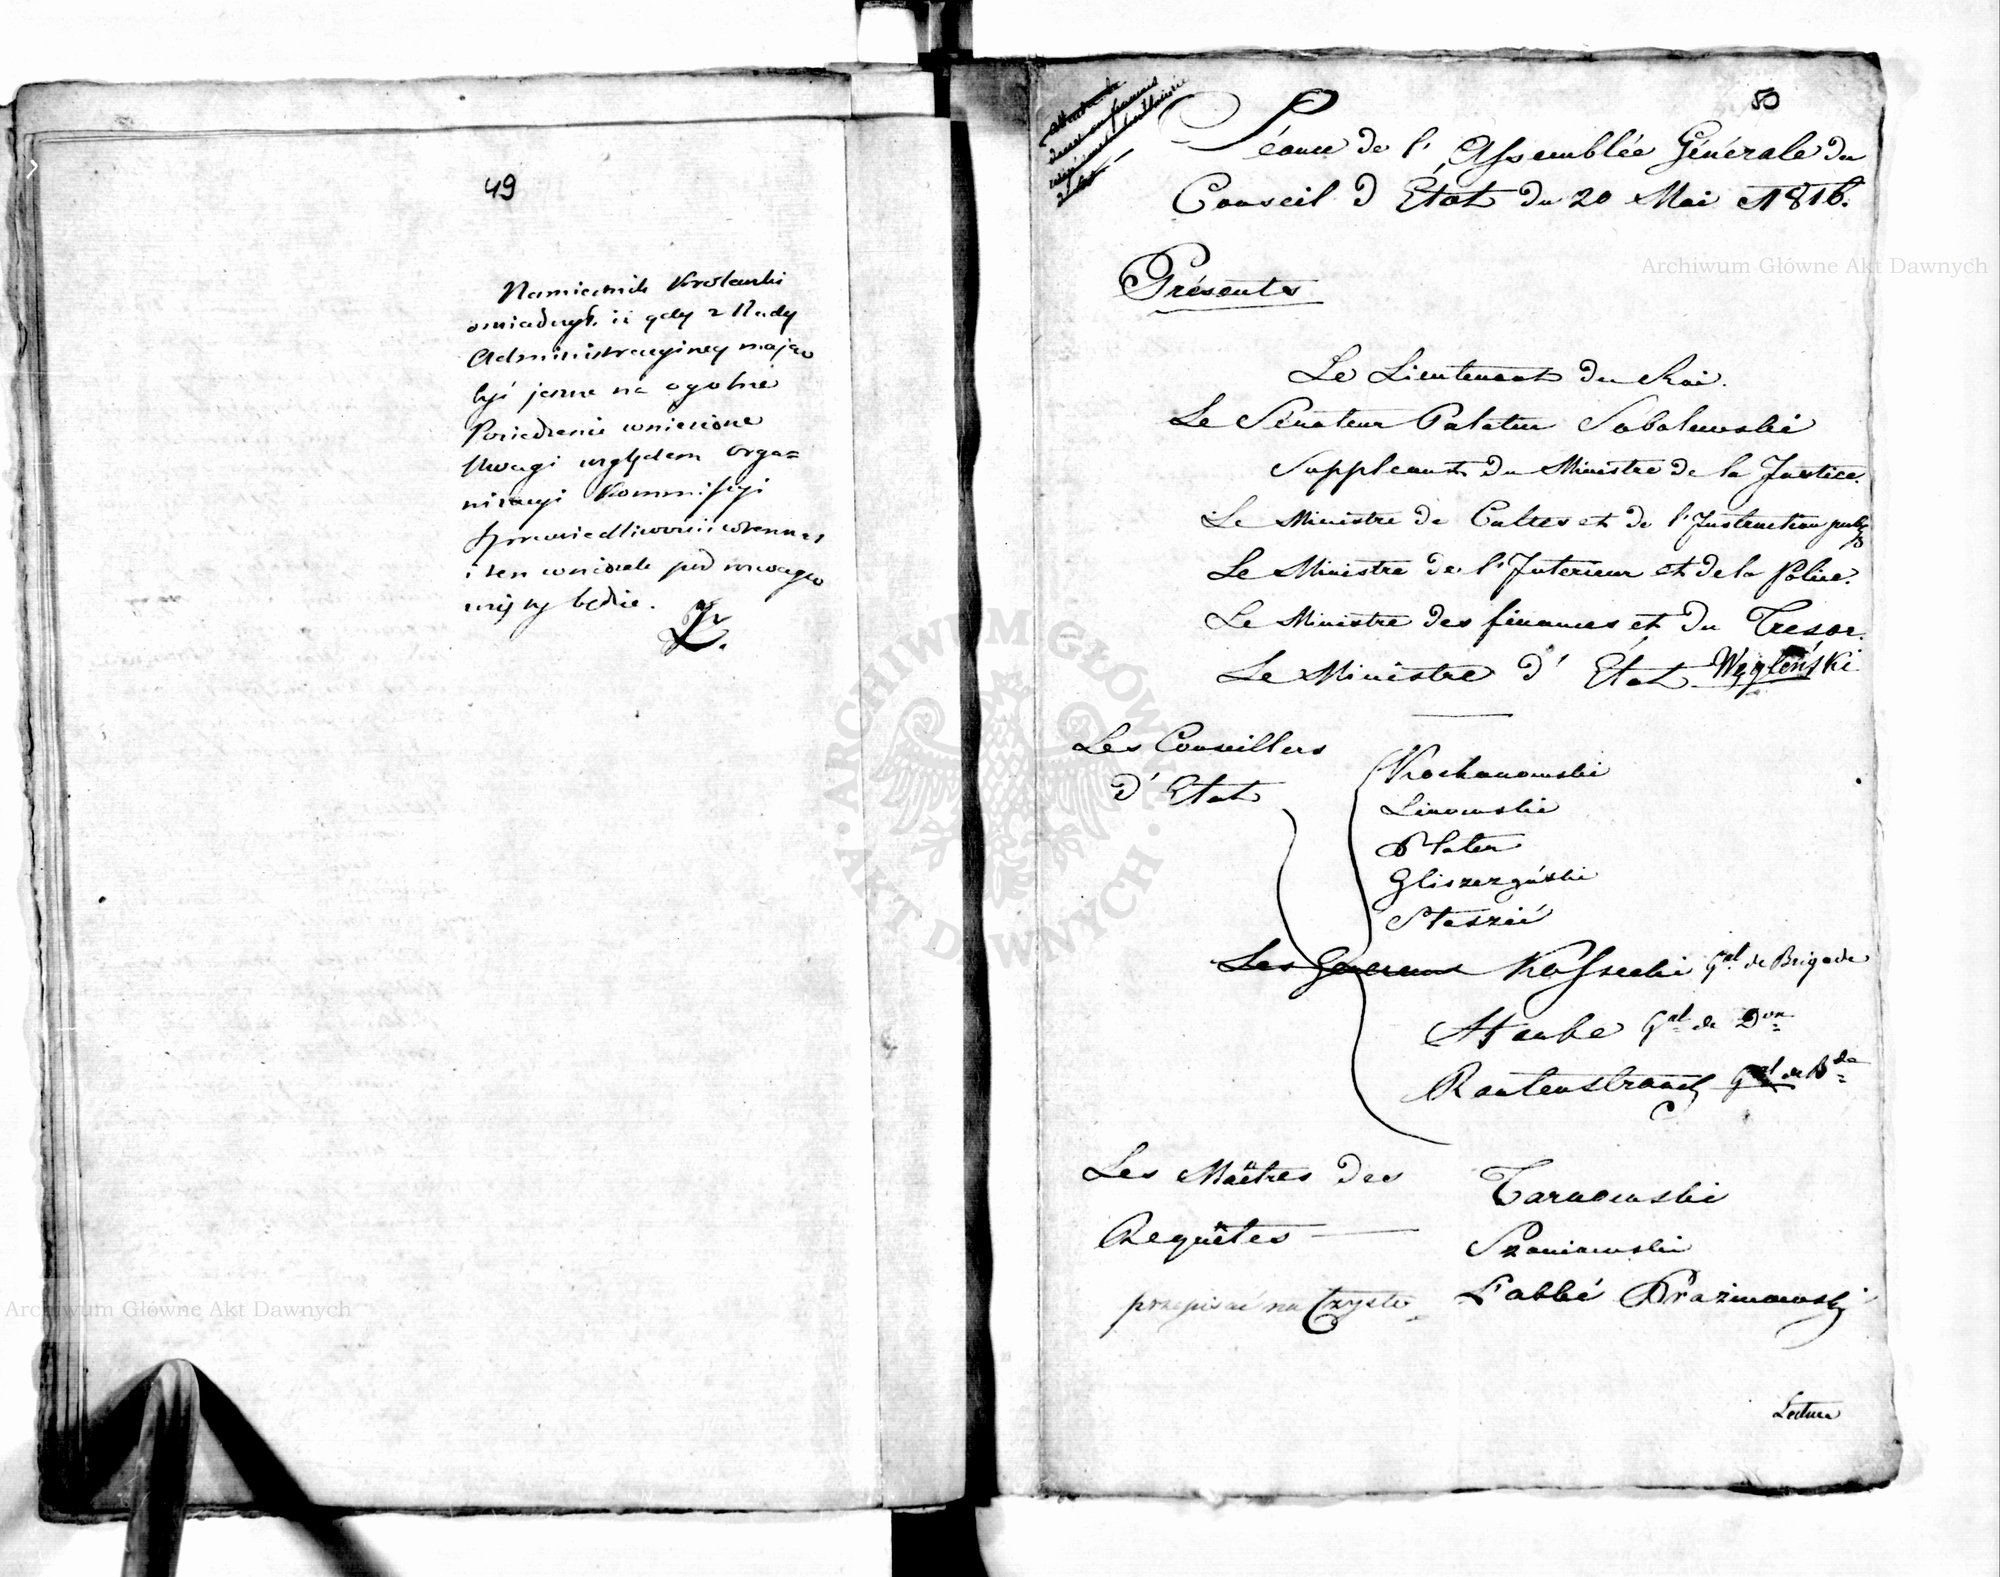 49
Namiestnik Krolewski
oświadczył, iż gdy z Rady
Administracyiney maią
być ieszcze na ogolne
Posiedzenie wniesione
Uwagi względem orga=
nizacyi Kommissyi
Sprawiedliwości wówczas
i ten wniosek pod rozwagę
wzięty będzie.
50
Séance de l'Assemblée Générale du
Conseil d'État du 20 Mai 1816.
Présents
Le Lieutenant du Roi.
Le Sénateur Palatin Sobolewski
Suppleant du Ministre de la Justice.
Le Ministre de Cultes et de l'Instruction
Le Ministre de l'Interieur et de la Police.
Le Ministre des finances et du Tresor.
Le Ministre d'État Węgleński
Les Conseillers
d'Etat
Kochanowski
Linowski
Plater
Gliszczyński
Staszic
Les Generaux Kossecki Gal de Brigade
Hauke Gal de Don
Rautenstrauch Gal de Bde
Les Maîtres des
Requêtes
Tarnowski
Szaniawski
L'abbé Prażmowski
przepisać na Czysto
Lecture
Archiwum Główne Akt Dawnych
Archiwum Główne Akt Dawnych
ARCHIWUM GŁÓWNE · AKT DAWNYCH ·